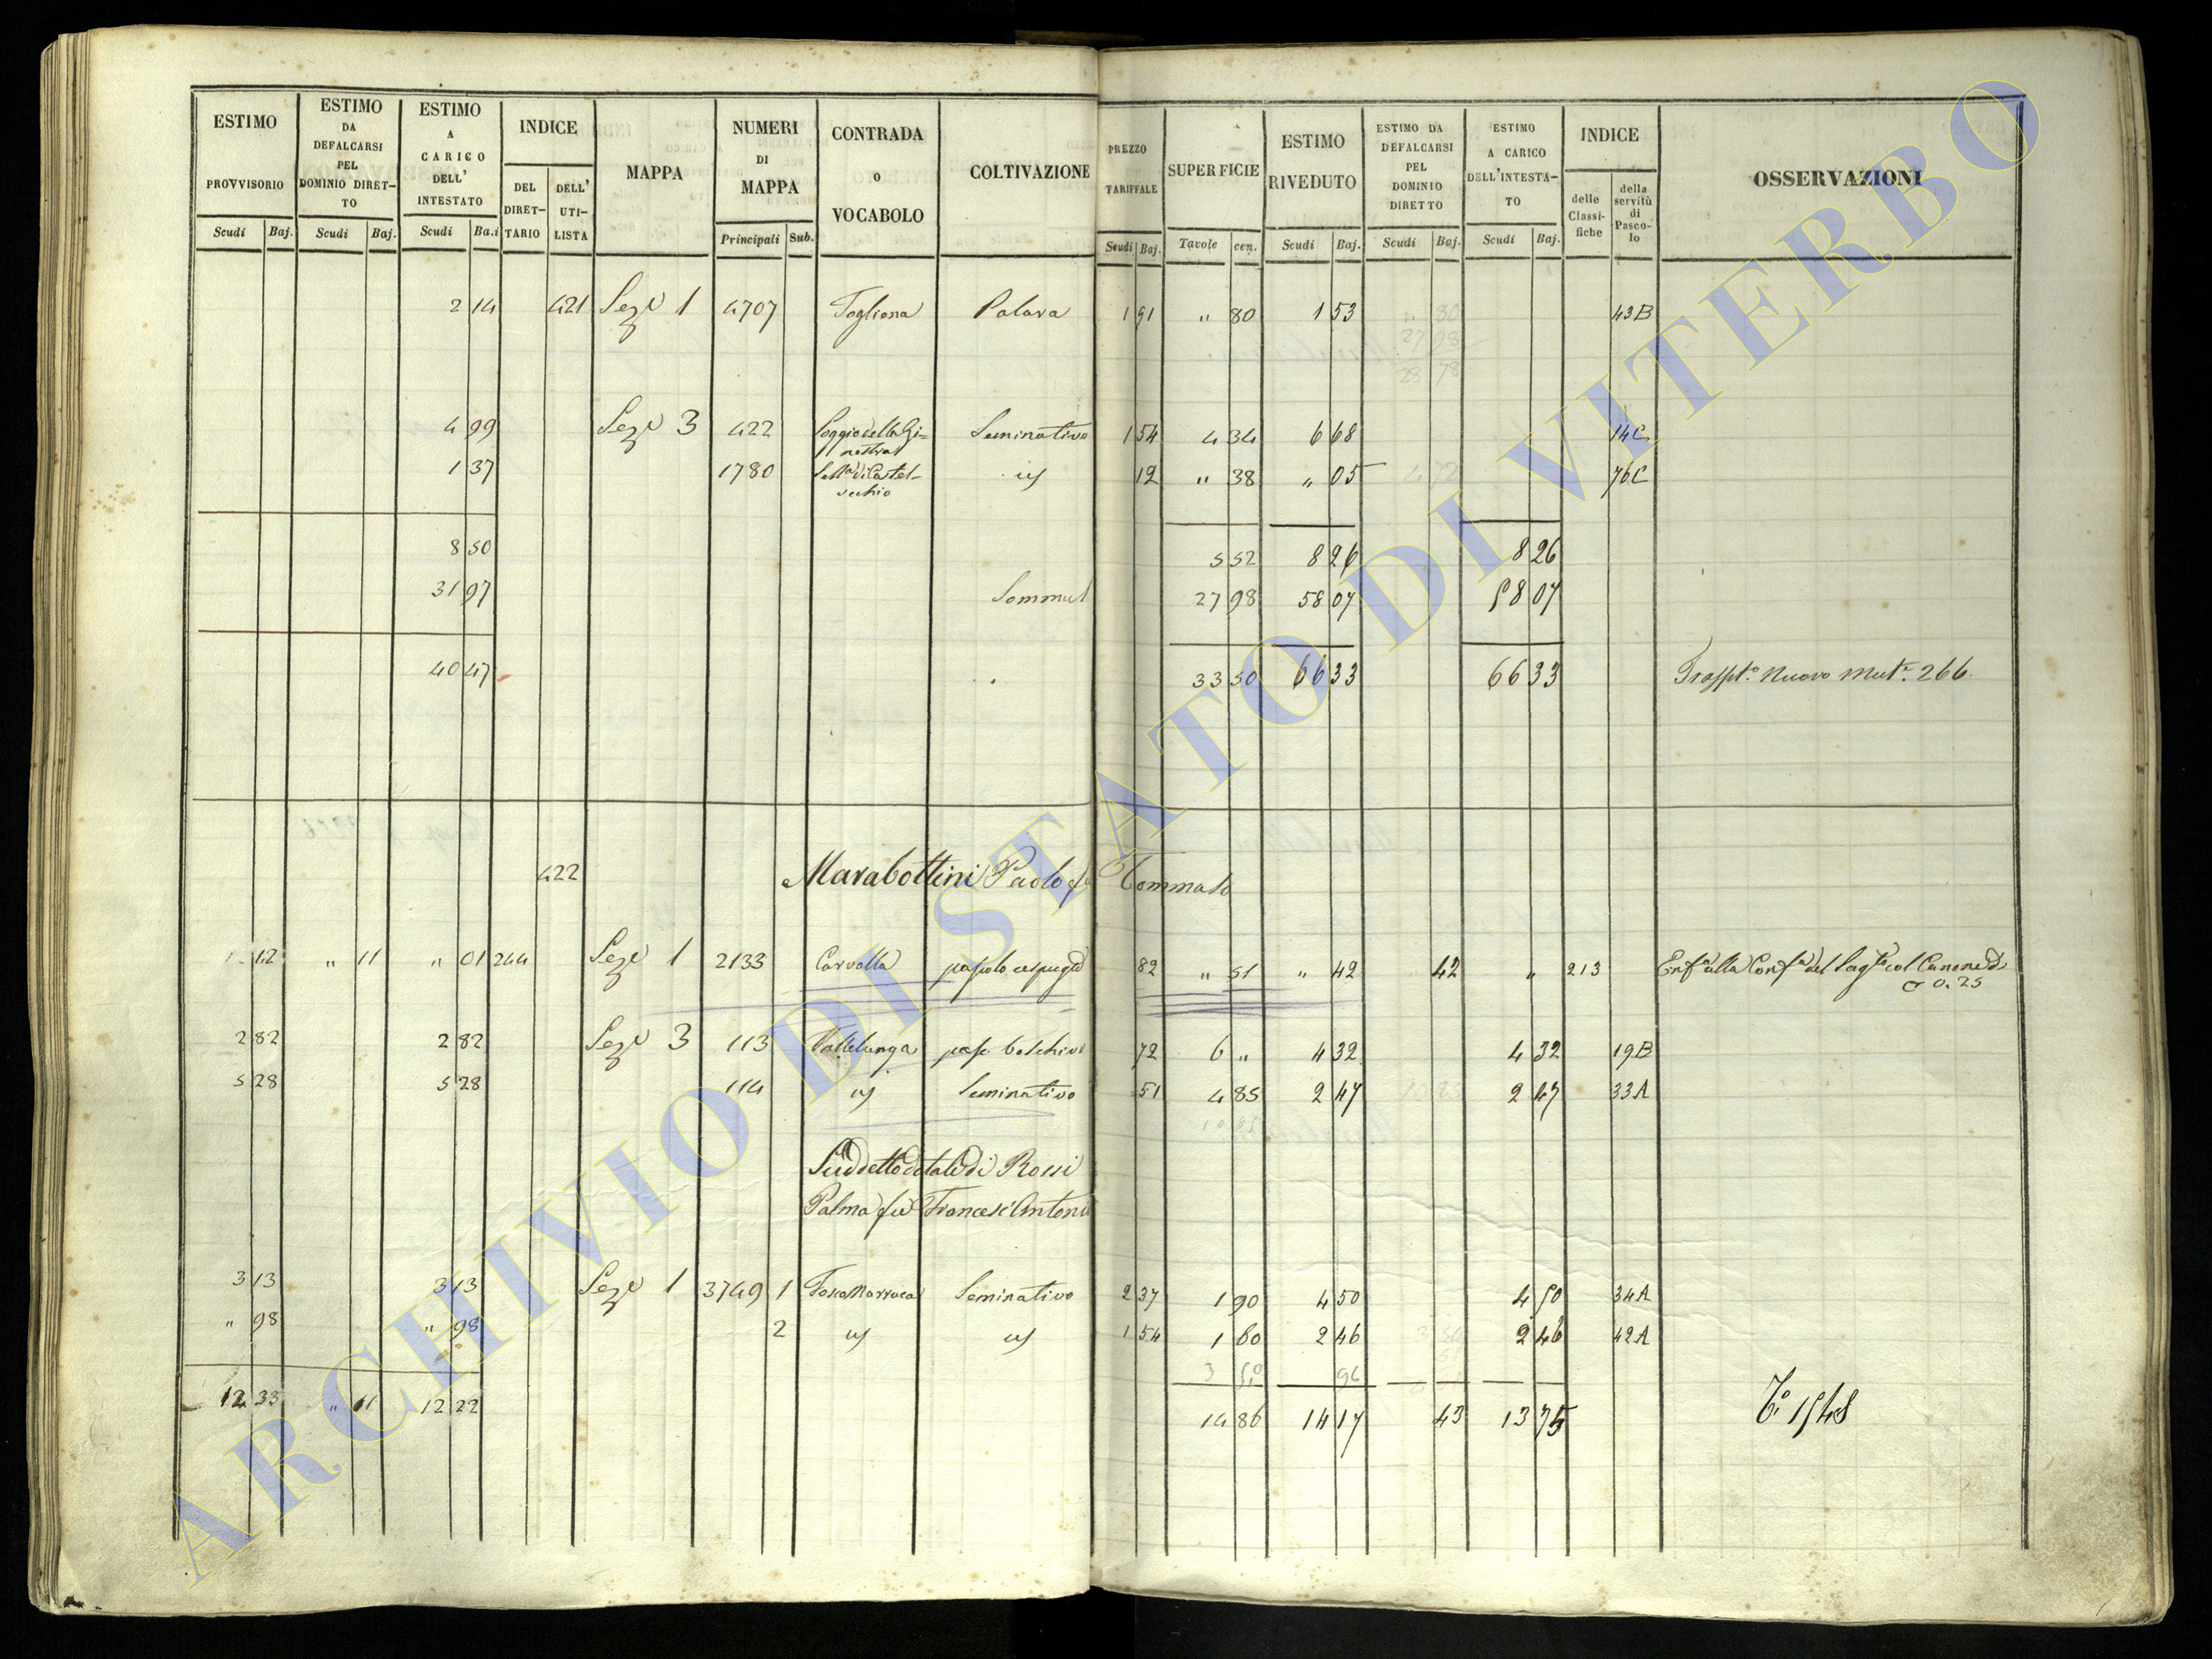 ESTIMO PROVVISORIO | ESTIMO DA DEFALCARSI PEL DOMINIO DIRET-TO | ESTIMO A CARICO DELL' INTESTATO | INDICE | MAPPA | NUMERI DI MAPPA | CONTRADA O VOCABOLO | COLTIVAZIONE | PREZZO TARIFFALE | SUPERFICIE | ESTIMO RIVEDUTO | ESTIMO DA DEFALCARSI PEL DOMINIO DIRETTO | ESTIMO A CARICO DELL'INTESTA-TO | INDICE | OSSERVAZIONI
DEL DIRET-TARIO | DELL' UTI-LISTA | delle Classi-fiche | della servitù di Pasco-lo
Scudi | Baj. | Scudi | Baj. | Scudi | Ba.i | Principali | Sub. | Scudi | Baj. | Tavole | cen. | Scudi | Baj. | Scudi | Baj. | Scudi | Baj.
2 14 | 421 | Seze 1 | 4707 | Fogliona | 1 91 | " 80 | 1 53 | 43B
4 99 | Seze 3 | 422 | Poggio della Gi=nestra | Seminativo | 1 54 | 4 34 | 6 68 | 14C
1 37 | 1780 | di Castel-vechio | 12 | " 38 | " 05 | 76C
8 50 | 5 52 | 8 26 | 8 26
31 97 | 27 98 | 58 07 | 58 07
40 47 | 33 50 | 66 33 | 66 33 | Nuovo Mut. 266
422 | Marabottini Paolo fu Tommaso
12 | " 11 | " 01 | 244 | Seze 1 | 2133 | 82 | " 51 | " 42 | 42 | " | 213 | Canone di 0.25
2 82 | 2 82 | Seze 3 | 113 | Vallelunga | boschivo | 72 | 6 " | 4 32 | 4 32 | 19B
5 28 | 5 28 | 114 | Seminativo | 51 | 4 85 | 2 47 | 2 47 | 33A
Suddetto di Rossi
Palma fu Francesc'Antonio
3 13 | 3 13 | Seze 1 | 3749 | 1 | Seminativo | 2 37 | 1 90 | 4 50 | 4 50 | 34A
" 98 | " 98 | 2 | 1 54 | 1 60 | 2 46 | 2 46 | 42A
12 33 | " 11 | 12 22 | 14 86 | 14 17 | 43 | 13 75 | 1548
ARCHIVIO DI STATO DI VITERBO